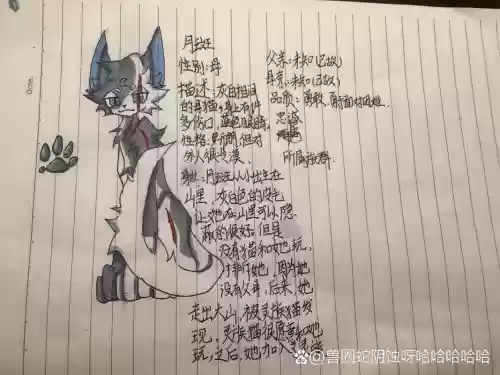 月
性别:母
描述:灰白相间
的县猫,身上有许
多伤口,蓝色眼睛
性格:开朗,但对
外人很冷漠
父亲:未知(已故)
母亲:未知(已故)
品质:勇敢,敢面对困难
忠诚
所属族群
身世:月 从小出生在
山里,灰白色的皮毛
让她在山里可以隐
蔽的很好。但是
没有猫和她玩,
排斥她,因为她
没有父母,后来,她
走出大山,被灵族猫发
现,灵族猫很愿意和她
玩,之后,她加入
@兽圈蛇阴蚀呀哈哈哈哈哈哈